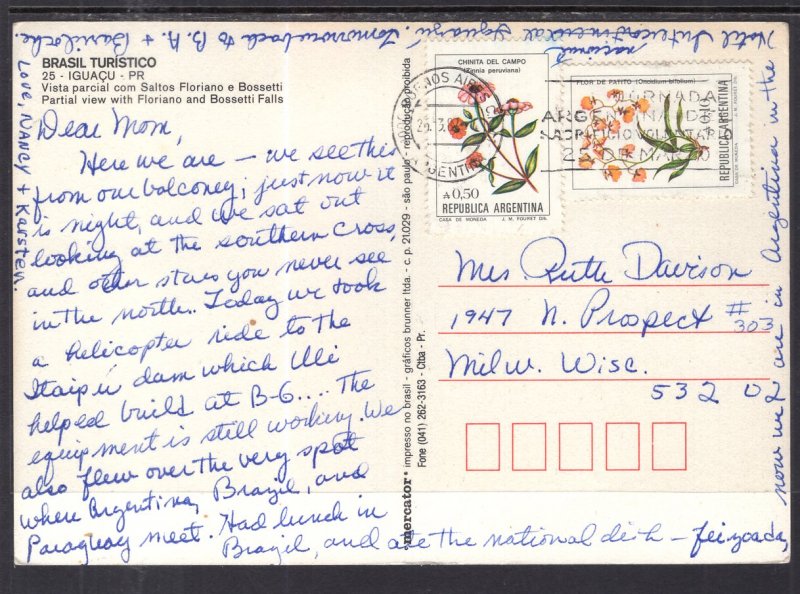 BRASIL TURÍSTICO
25 - IGUAÇU - PR
Vista parcial com Saltos Floriano e Bossetti
Partial view with Floriano and Bossetti Falls
Dear Mom,
Here we are — we see this
from our balconey; just now it
is night, and we sat out
looking at the southern cross,
and other stars you never see
in the north.. Today we took
a helicopter ride to the
Itaipú dam which Uli
helped build at B-6.... The
equipment is still working. We
also flew over the very spot
where Argentina, Brazil, and
Paraguay meet. Had lunch in
Brazil, and ate the national dish — feijoada,
now we are in Argentina in the
Hotel Intercontinental Iguazú.
nacional
Tomorrow back to B.A. + Bariloche.
Love, Nancy + Karsten.
mercator® impresso no brasil - gráficos brunner ltda. - c. p. 21.029 - são paulo - reprodução proibida
Fone (041) 262-3163 - Ctba - Pr.
CHINITA DEL CAMPO
(Zinnia peruviana)
A0,50
REPUBLICA ARGENTINA
CASA DE MONEDA J. M. FOURET DIB.
FLOR DE PATITO (Oncidium bifolium)
REPUBLICA ARGENTINA
CASA DE MONEDA J. M. FOURET DIB.
BUENOS AIRES
ARGENTINA
JORNADA
ARGENTINA DEL
SACRIFICIO VOLUNTARIO
DE MARZO
Mrs. Ruth Davison
1947 N. Prospect #303
Milw. Wisc.
53202